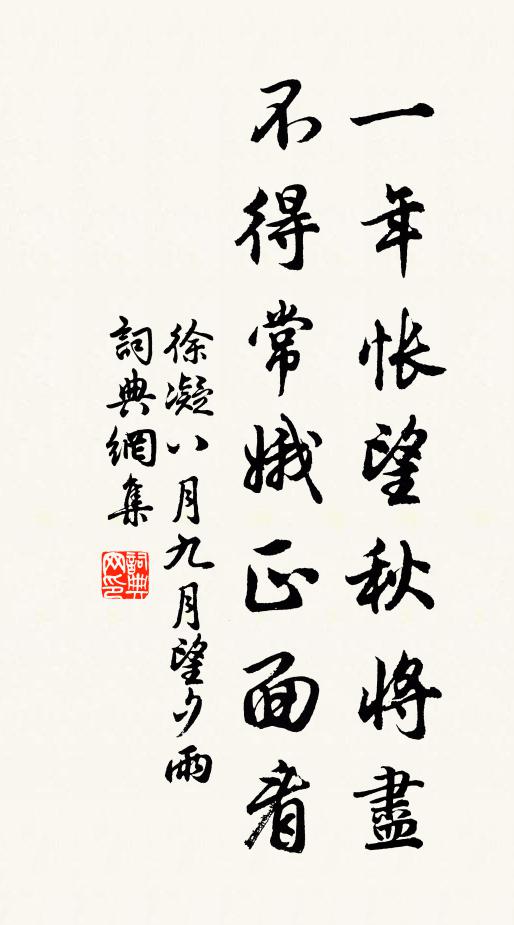 一年悵望秋將盡
不得常娥正面看
徐凝八月九月望夕雨
詞典網集
詞典網印